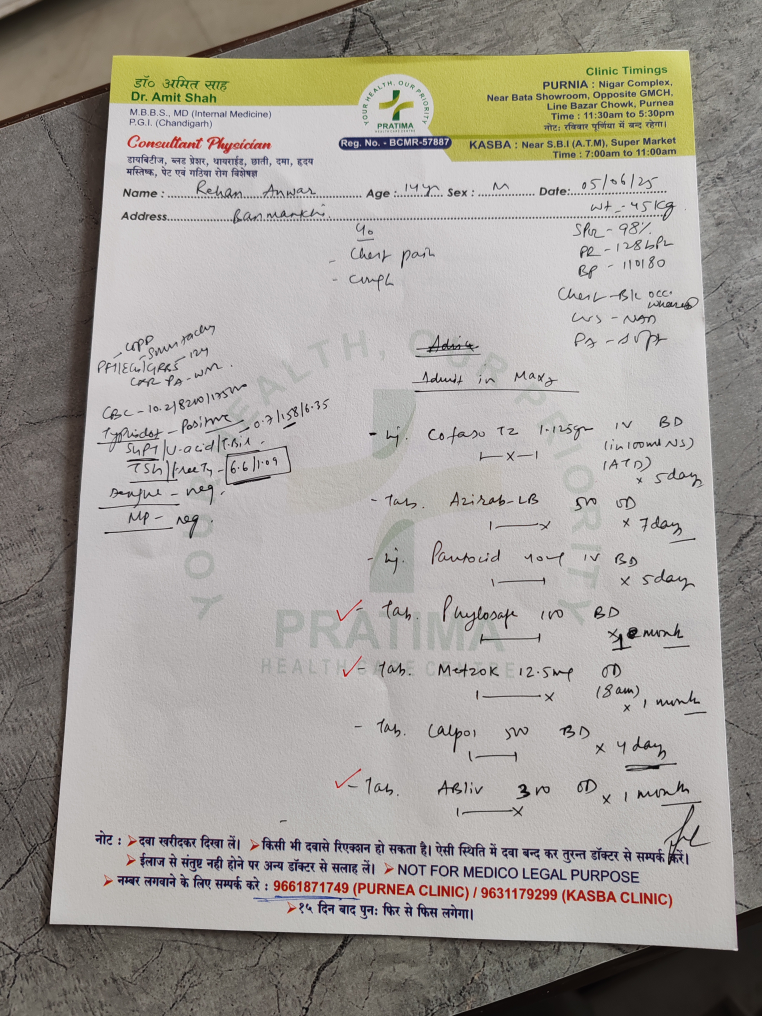 डॉ० अमित साह
Dr. Amit Shah
M.B.B.S., MD (Internal Medicine)
P.G.I. (Chandigarh)
Consultant Physician
डायबिटीज, ब्लड प्रेशर, थायराईड, छाती, दमा, हृदय
मस्तिष्क, पेट एवं गठिया रोग विशेषज्ञ
YOUR HEALTH, OUR PRIORITY
PRATIMA
HEALTH CARE CENTRE
Reg. No. - BCMR-57887
Clinic Timings
PURNIA : Nigar Complex,
Near Bata Showroom, Opposite GMCH,
Line Bazar Chowk, Purnea
Time : 11:30am to 5:30pm
नोट: रविवार पूर्णिया में बन्द रहेगा।
KASBA : Near S.B.I (A.T.M), Super Market
Time : 7:00am to 11:00am
Name : Rehan Anwar Age : 14yr Sex : M Date: 05/06/25
Address Banmankhi
Wt - 45kg
SPO2 - 98%
PR - 128
BP - 110/80
Chest - B/L occ.
- NAD
P/A - Soft
C/o
- Chest pain
- Cough
CBC - 10.2/8200/
Typhidot - Positive
SGPT/U.acid/T.Bil - 0.7/158/6.35
TSH/Free T4 - 6.6/1.09
Dengue - neg.
MP - neg.
Advice
Admit in Max7
- Inj. Cofaso TZ 1.125gm IV BD
1-x-1 (in 100ml NS)
(ATD)
x 5day
- Tab. Azirab-LB 500 OD
x 7day
- Inj. Pantocid 40mg IV BD
x 5day
- Tab. Phylosafe 100 BD
x 1 month
- Tab. Metzok 12.5mg OD
(8am)
x 1 month
- Tab. Calpol 500 BD
x 4 day
- Tab. ABliv 300 OD
x 1 month
YOUR HEALTH, OUR PRIORITY
PRATIMA
HEALTH CARE CENTRE
नोट : ➤दवा खरीदकर दिखा लें। ➤किसी भी दवासे रिएक्शन हो सकता है। ऐसी स्थिति में दवा बन्द कर तुरन्त डॉक्टर से सम्पर्क करें।
➤ईलाज से संतुष्ट नही होने पर अन्य डॉक्टर से सलाह लें। ➤NOT FOR MEDICO LEGAL PURPOSE
➤नम्बर लगवाने के लिए सम्पर्क करे : 9661871749 (PURNEA CLINIC) / 9631179299 (KASBA CLINIC)
➤१५ दिन बाद पुनः फिर से फिस लगेगा।